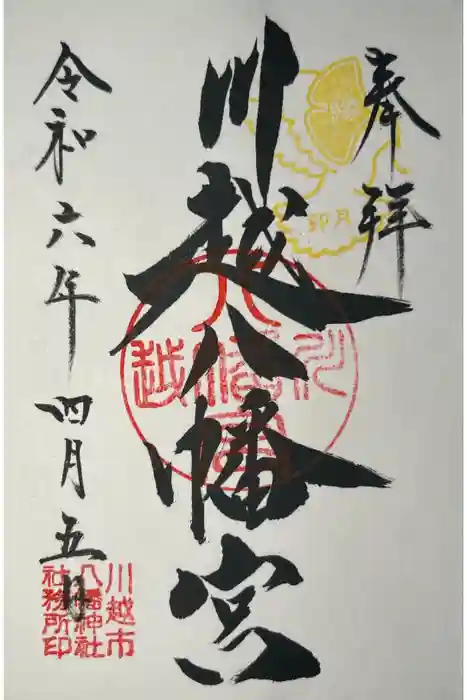 奉拝
卯月
川越八幡宮
川越
八幡宮
令和六年四月五日
川越市
八幡神社
社務所印